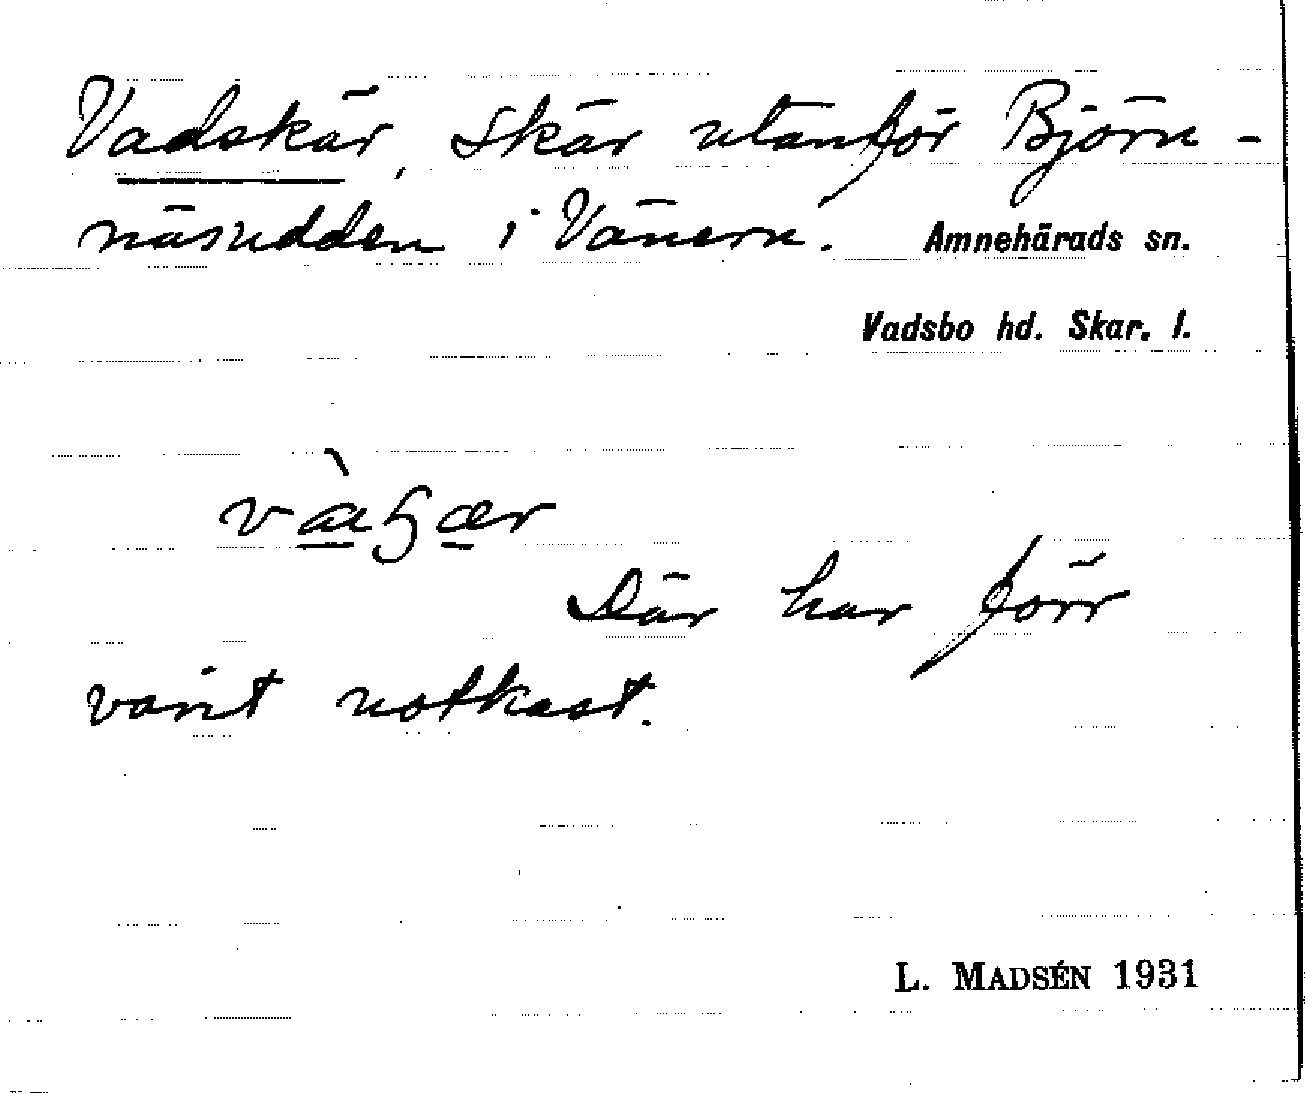 Vadskär, skär utanför Björn-
näsudden i Vänern. Amnehärads sn.
Vadsbo hd. Skar. l.
Där har förr
varit notkast.
L. MADSÉN 1931